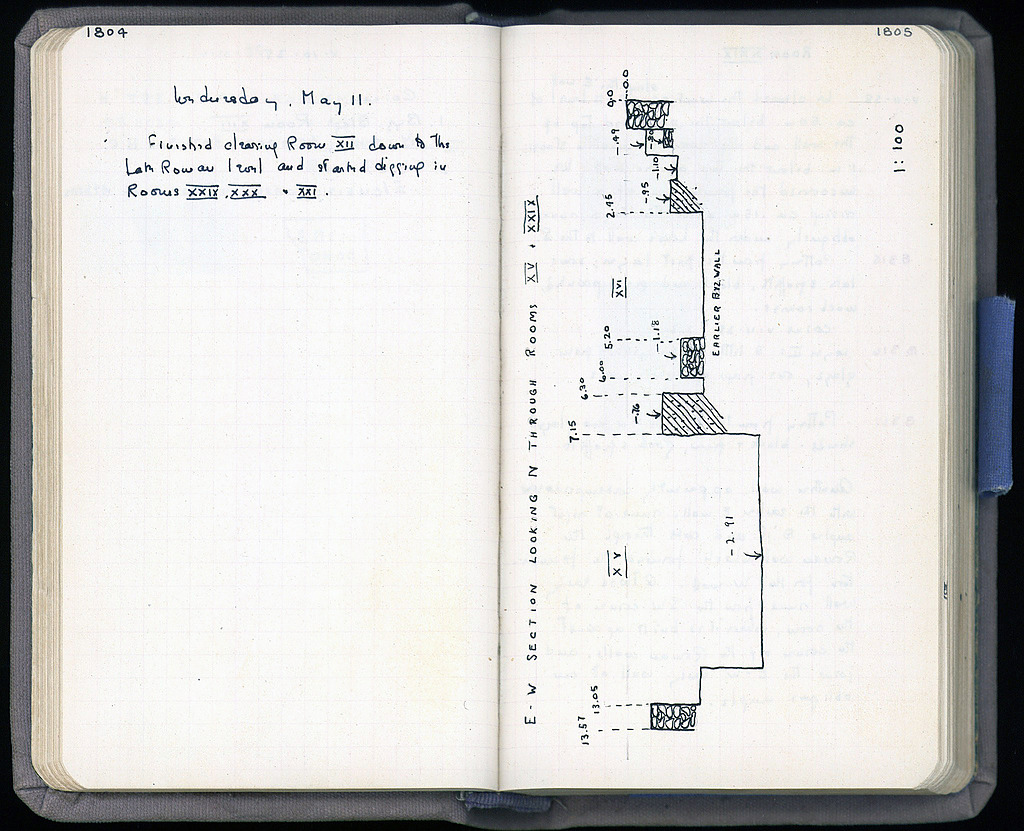 1804
Wednesday, May 11.
Finished clearing Room XII down to the
Late Roman level and started digging in
Rooms XXIX, XXX + XXI.
1805
1:100
E-W SECTION LOOKING N THROUGH ROOMS XV + XXIX
0.0
.90
1.49
-.80
-1.10
-.95
2.95
XVI
EARLIER BYZ WALL
5.20
-1.18
6.00
6.30
-.76
7.15
XV
-2.91
13.05
13.57